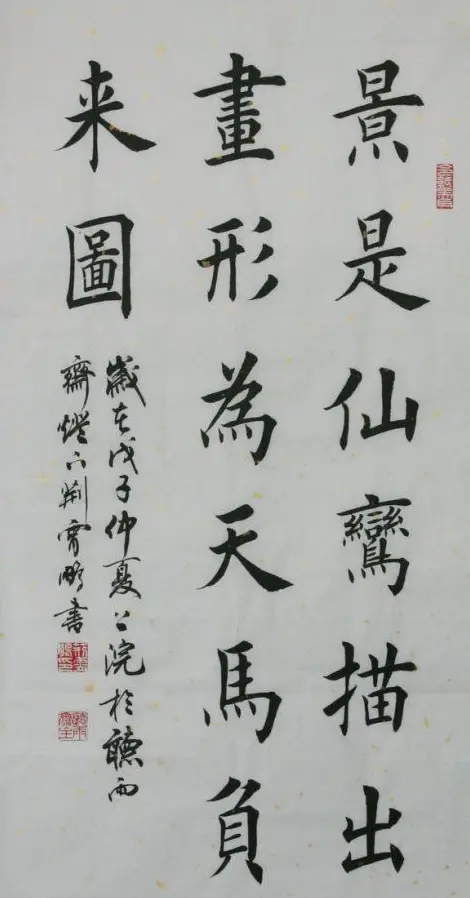 景是仙鸞描出
畫形為天馬負
来圖
歲在戊子仲夏上浣於聽雨
齋燈下荆霄鵬書